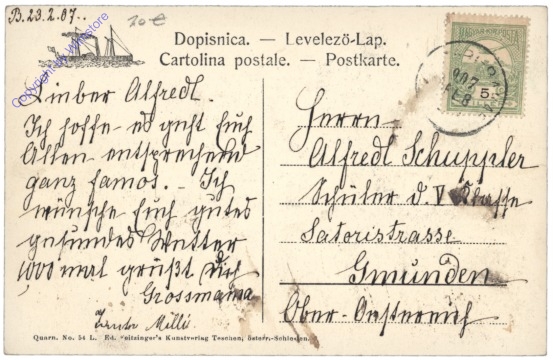 B. 23.2.07.
20€
Copyright by wnestore
Dopisnica. — Levelező-Lap.
Cartolina postale. — Postkarte.
MAGYAR KIR. POSTA
5
907
FEB
Lieber Alfredl.
Ich hoffe es geht Euch
Allen entsprechend
ganz famos. Ich
wünsche Euch gutes
gesundes Wetter
1000 mal grüßt Dich
Grossmama
Tante Milli
Herrn
Alfredl Schuppler
Schüler d. V Klasse
Satoristrasse
Gmunden
Ober-Oesterreich
Quarn. No. 54 L. Ed. Feitzinger's Kunstverlag Teschen, österr.-Schlesien.